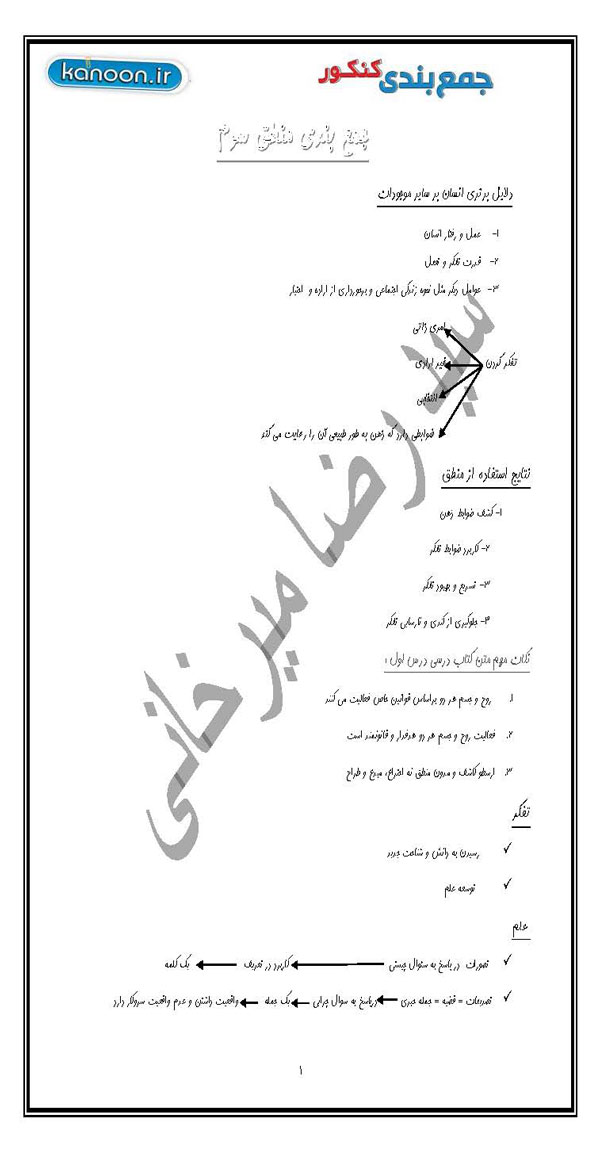 kanoon.ir
جمع بندی کنکور
جمع بندی منطق سوم
دلایل برتری انسان بر سایر موجودات
۱- عمل و رفتار انسان
۲- قدرت تفکر و تعقل
۳- عوامل دیگر مثل نحوه زندگی اجتماعی و برخورداری از اراده و اختیار
تفکر کردن
امری ذاتی
غیر ارادی
انتخابی
ضوابطی دارد که ذهن به طور طبیعی آن را رعایت می کند
نتایج استفاده از منطق
۱- کشف ضوابط ذهن
۲- کاربرد ضوابط تفکر
۳- تسریع و بهبود تفکر
۴- جلوگیری از کندی و نارسایی تفکر
نکات مهم متن کتاب درسی درس اول :
۱. روح و جسم هر دو براساس قوانین خاص فعالیت می کنند
۲. فعالیت روح و جسم هر دو هدفدار و قانونمند است
۳. ارسطو کاشف و مدون منطق نه اختراع، مبدع و طراح
تفکر
✓ رسیدن به دانش و شناخت جدید
✓ توسعه علم
علم
✓ تصورات در پاسخ به سئوال چیستی کاربرد در تعریف یک کلمه
✓ تصدیقات = قضیه = جمله خبری در پاسخ به سوال چرایی یک جمله واقعیت داشتن و عدم واقعیت سروکار دارد
سید رضا میرخانی
۱